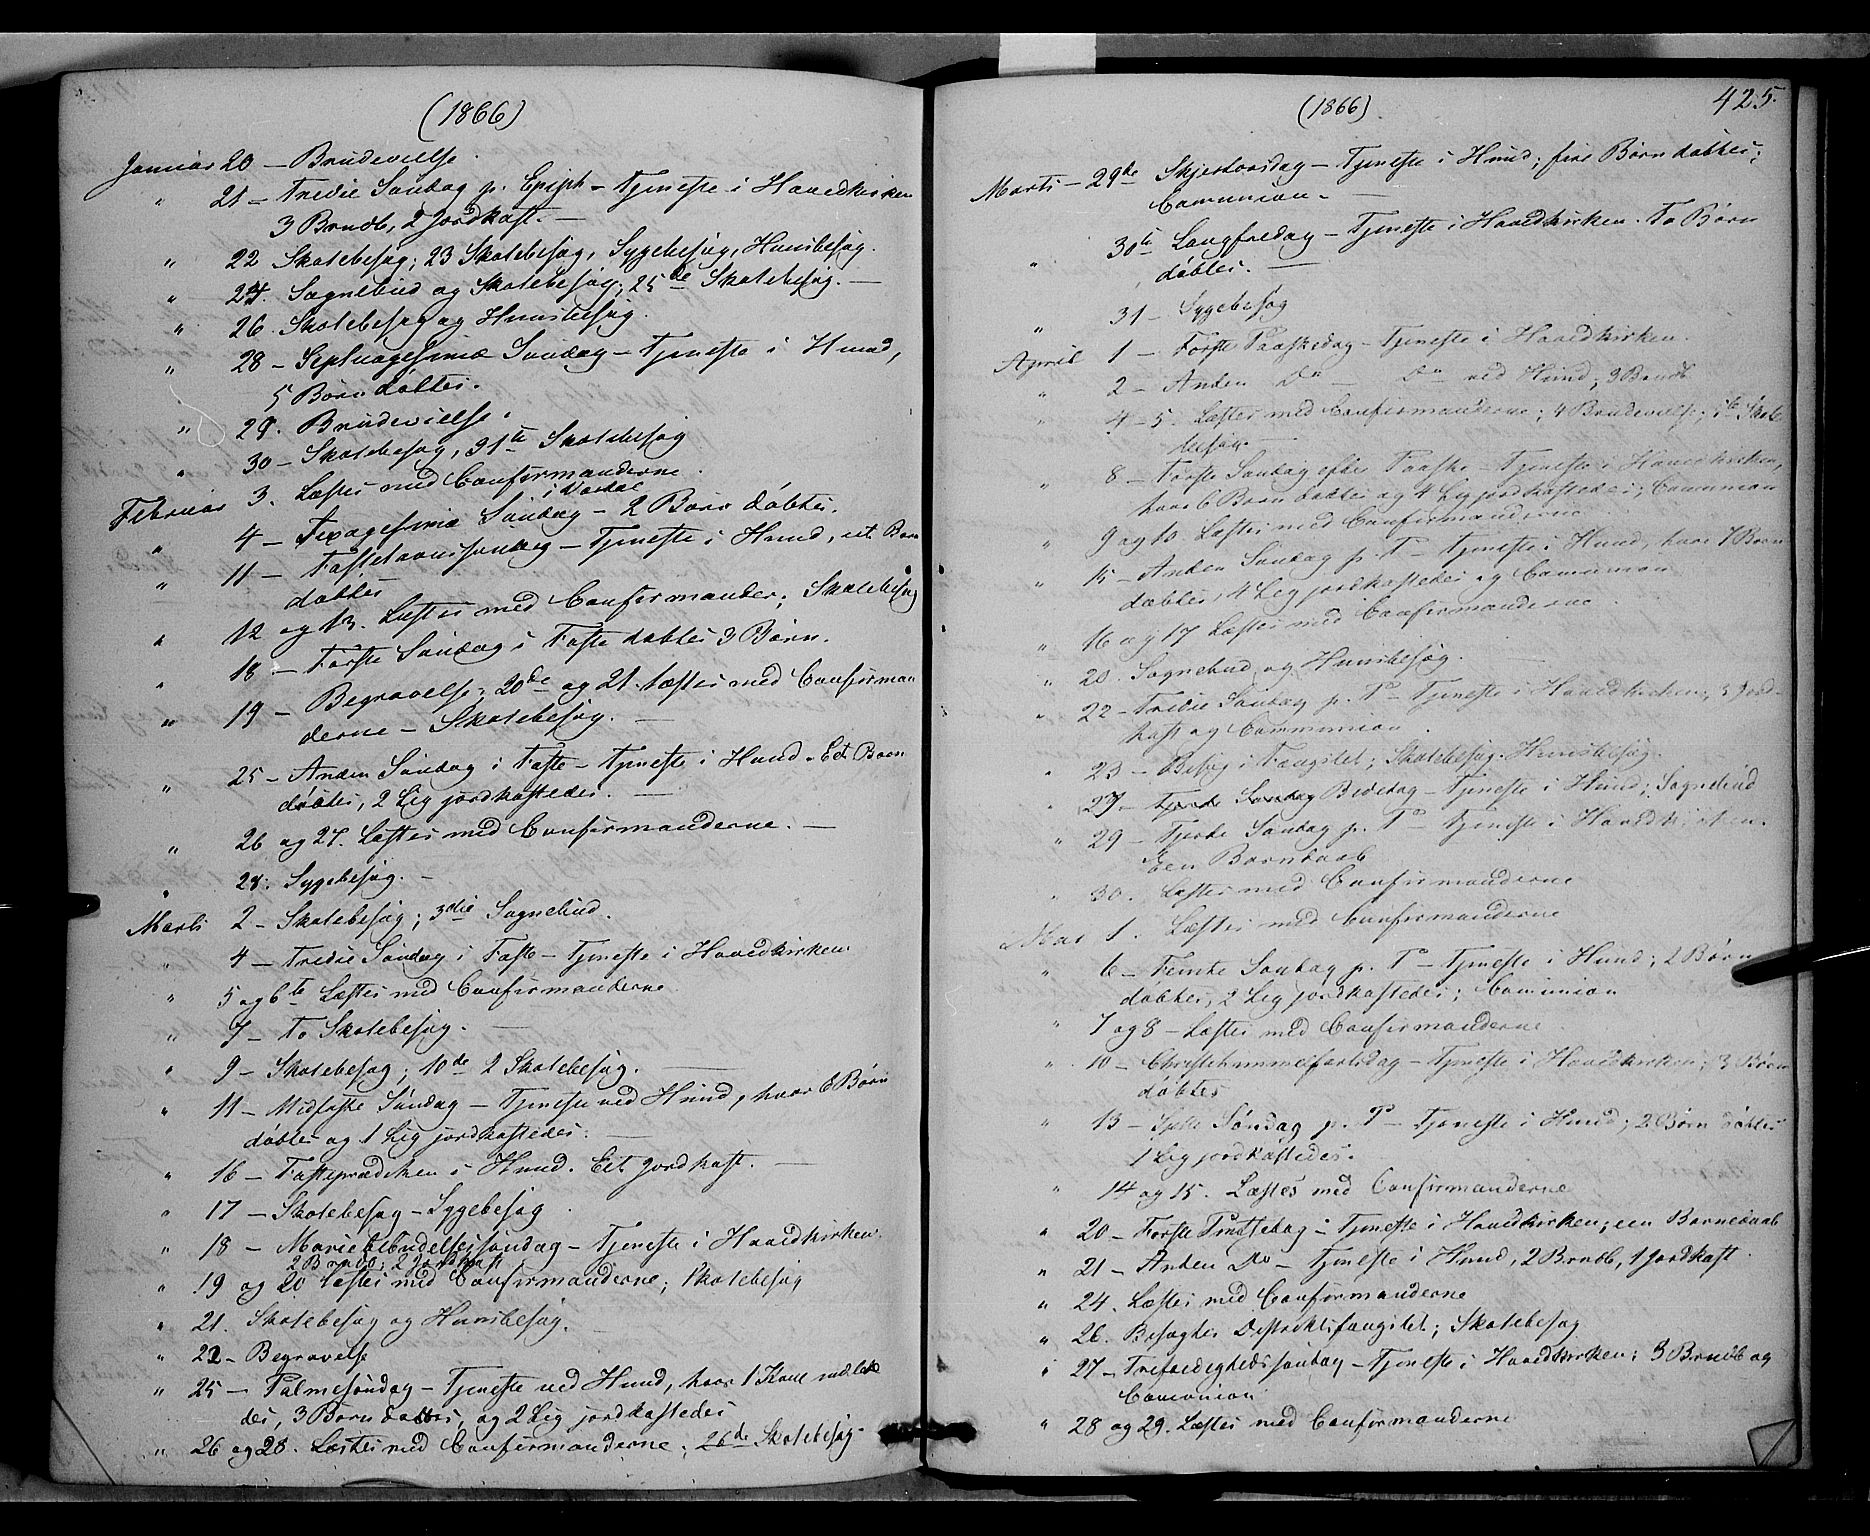 (1866)
Januar 20 — Brudevielse.
" 21 — Tredie Søndag p. Epiph — Tjeneste i Hovedkirken
3 Brndb, 2 Jordkast. —
" 22 Skolebesøg; 23 Skolebesøg, Sygebesøg, Huusbesøg.
" 24. Sognebud og Skolebesøg; 25de Skolebesøg. —
" 26. Skolebesøg og Huusbesøg.
" 28 — Septuagesimæ Søndag — Tjeneste i Hund,
5 Børn døbtes.
" 29. Brudevielse.
" 30 — Skolebesøg, 31te Skolebesøg
Februar 3. Læstes med Confirmanderne.
" 4 — Sexagesimæ Søndag i Vardal — 2 Børn døbtes.
" 11 — Fastelavnssøndag — Tjeneste i Hund, et Barn
døbtes
" 12 og 13. Læstes med Confirmander; Skolebesøg
" 18 — Første Søndag i Faste døbtes 3 Børn.
" 19 — Begravelse; 20de og 21. læstes med Confirman
derne — Skolebesøg. —
" 25 — Anden Søndag i Faste — Tjeneste i Hund. Eet Barn
døbtes, 2 Lig jordkastedes. —
" 26 og 27. Læstes med Confirmanderne. —
" 28. Sygebesøg. —
Marts 2 — Skolebesøg; 3die Sognebud.
" 4 — Tredie Søndag i Faste — Tjeneste i Hovedkirken
" 5 og 6te Læstes med Confirmanderne
" 7 — To Skolebesøg. —
" 9 — Skolebesøg; 10de 2 Skolebesøg. —
" 11 — Midfaste Søndag — Tjeneste ved Hund, hvor 6 Børn
døbtes og 1 Lig jordkastedes. —
" 16 — Fasteprædiken i Hund. Eet Jordkast. —
" 17 — Skolebesøg — Sygebesøg
" 18 — Mariæ Bebudelsessøndag — Tjeneste i Hovedkirken.
2 Brndb; 2 Jordkast
" 19 og 20 læstes med Confirmanderne; Skolebesøg
" 21. Skolebesøg og Huusbesøg.
" 22 — Begravelse
" 25 — Palmesøndag — Tjeneste ved Hund, hvor 1 Kone
des, 3 Børn døbtes, og 2 Lig jordkastedes
" 26 og 28. Læstes med Confirmanderne; 26de Skolebesøg.
425.
(1866)
Marts — 29de Skjertorsdag — Tjeneste i Hund; fire Børn døbtes;
Communion. —
" 30te Langfredag — Tjeneste i Hovedkirken. To Børn
døbtes. —
" 31 — Sygebesøg
April 1 — Første Paaskedag — Tjeneste i Hovedkirken.
" 2 — Anden Do — Do ved Hund; 3 Brndb
" 4 — 5. Læstes med Confirmanderne; 4 Brudevielse; 5te Skole
besøg. —
" 8 — Første Søndag efter Paaske — Tjeneste i Hovedkirken,
hvor 6 Børn døbtes og 4 Lig jordkastedes; Communion
" 9 og 10. Læstes med Confirmanderne.
" 15 — Anden Søndag p. P — Tjeneste i Hund, hvor 7 Børn
døbtes, 4 Lig jordkastedes og Communion
" 16 og 17 Læstes med Confirmanderne.
" 20. Sognebud og Huusbesøg.
" 22 — Tredie Søndag p. P — Tjeneste i Hovedkirken; 3 Jord-
kast og Communion.
" 23 — Besøg i Fængslet; Skolebesøg. Huusbesøg.
" 27 — Fjerde Søndag Bededag — Tjeneste i Hund; Sognebud
" 29 — Fjerde Søndag p. P — Tjeneste i Hovedkirken.
Een Barnedaab
" 30. Læstes med Confirmanderne
Mai 1. Læstes med Confirmanderne
" 6 — Femte Søndag p. P — Tjeneste i Hund; 2 Børn
døbtes, 2 Lig jordkastedes; Communion
" 7 og 8 — Læstes med Confirmanderne.
" 10 — Christihimmelfartsdag — Tjeneste i Hovedkirken; 3 Børn
døbtes
" 13 — Sjette Søndag p. P — Tjeneste i Hund; 2 Børn døbtes
1 Lig jordkastedes.
" 14 og 15. Læstes med Confirmanderne
" 20 — Første Pintsedag — Tjeneste i Hovedkirken; een Barnedaab
" 21 — Anden Do — Tjeneste i Hund, 2 Brndb, 1 Jordkast.
" 24. Læstes med Confirmanderne
" 26. Besøgtes Distriktsfængslet; Skolebesøg
" 27 — Trefoldighedssøndag — Tjeneste i Hovedkirken; 3 Brndb og
Communion
" 28 og 29. Læstes med Confirmanderne